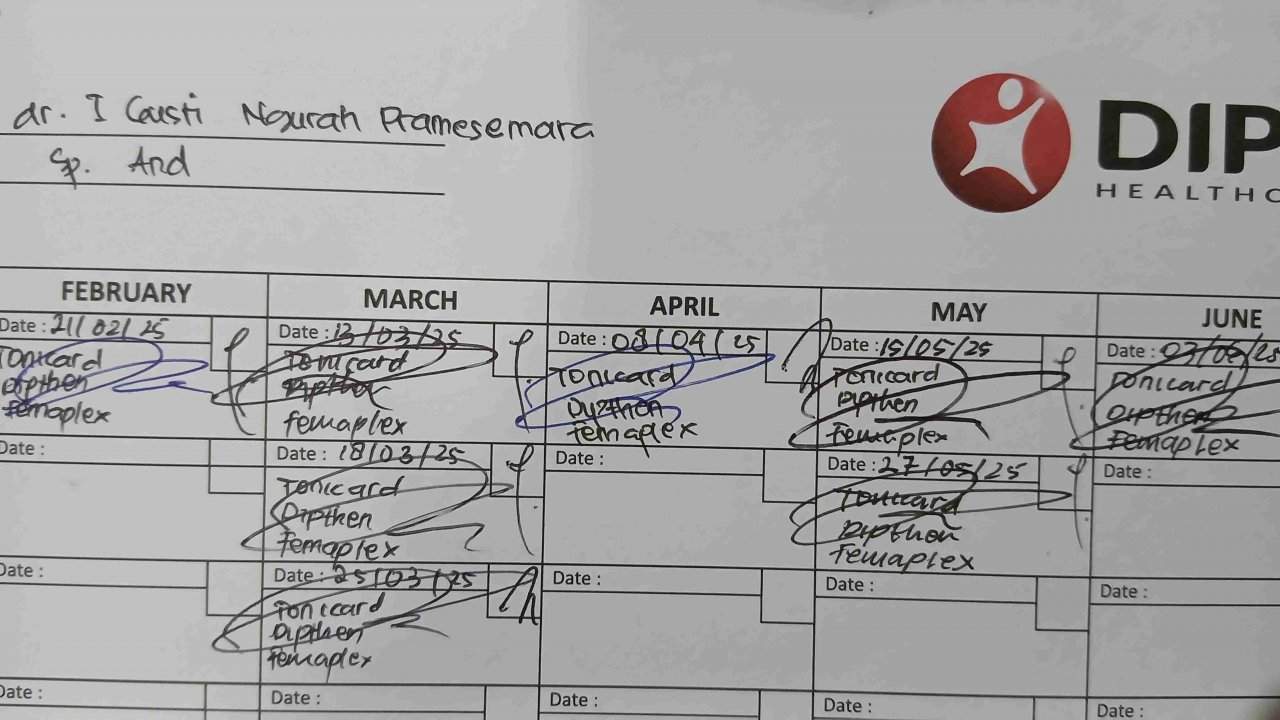 dr. I Gusti Ngurah Pramesemara
Sp. And
DIP
HEALTHC
FEBRUARY
MARCH
APRIL
MAY
JUNE
Date : 21/02/25
Tonicard
Dipthen
Femaplex
Date : 13/03/25
Tonicard
Dipthen
femaplex
Date : 08/04/25
Tonicard
Dipthen
femaplex
Date : 15/05/25
Tonicard
Dipthen
Femaplex
Date : 03/06/25
Tonicard
Dipthen
Femaplex
Date :
Date : 18/03/25
Tonicard
Dipthen
femaplex
Date :
Date : 27/05/25
Tonicard
Dipthen
Femaplex
Date :
Date :
Date : 25/03/25
Tonicard
Dipthen
femaplex
Date :
Date :
Date :
Date :
Date :
Date :
Date :
Date :